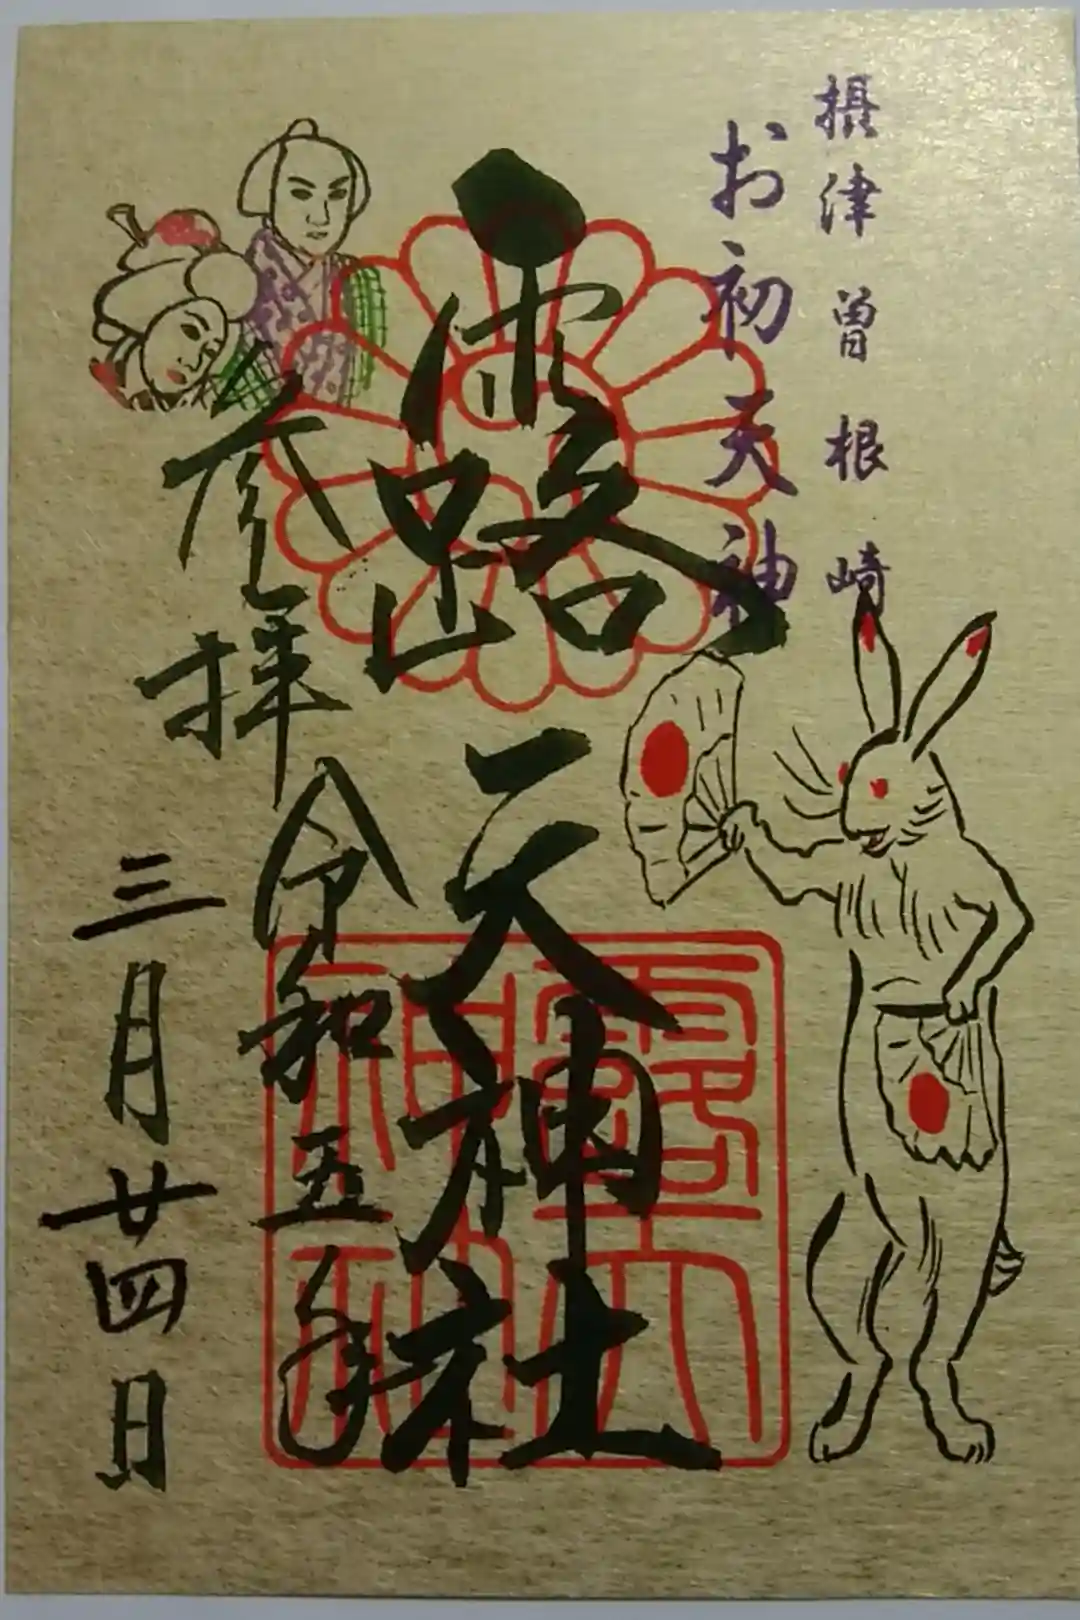 摂津 曽根崎
お初天神
露天神社
奉拝
令和五年
三月廿四日
露天神社